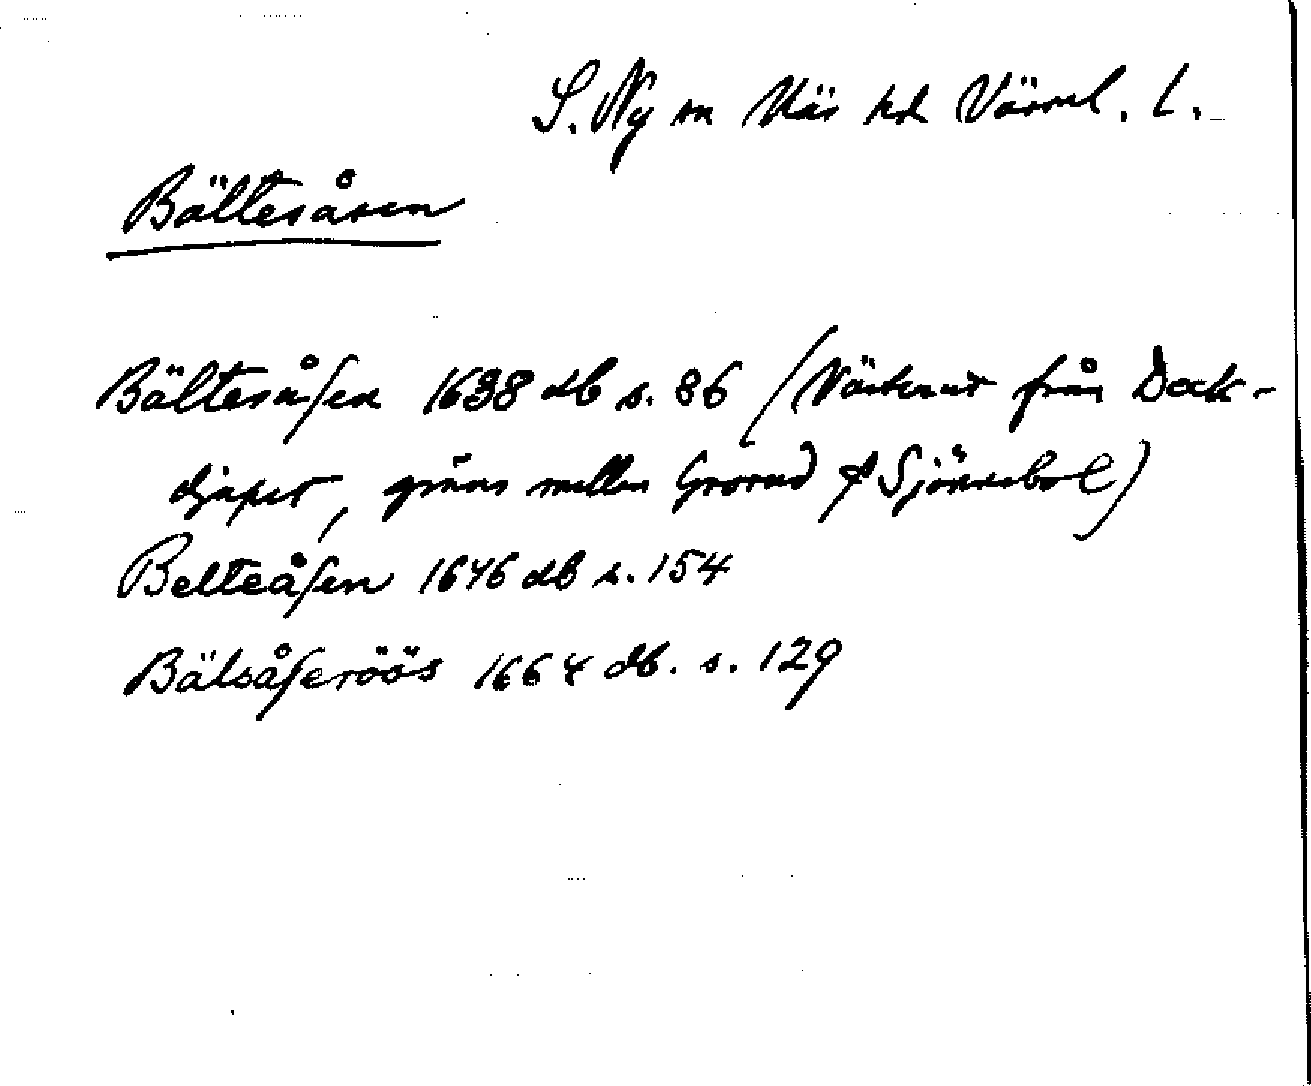 S. Ny sn Näs hd Värml. l.
Bältesåsen
Bältesåsen 1638 db s. 86 (Västerut från Dock-
djupet, gräns mellan Grorud & Sjönnebol)
Belteåsen 1646 db s. 154
Bälsåseröös 1664 db. s. 129